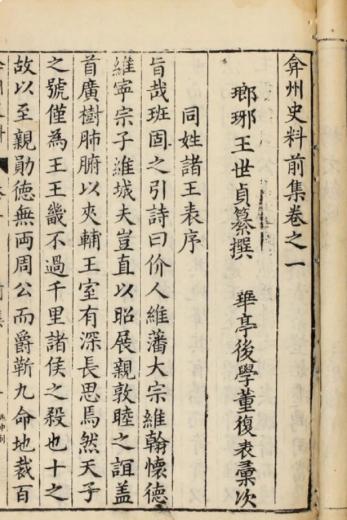 弇州史料前集卷之一
瑯琊王世貞纂撰　華亭後學董復表彙次
同姓諸王表序
旨哉班固之引詩曰价人維藩大宗維翰懷德
維寧宗子維城夫豈直以昭展親敦睦之誼盖
首廣樹肺腑以夾輔王室有深長思焉然天子
之號僅為王王畿不過千里諸侯之殺也十之
故以至親勛德無両周公而爵靳九命地裁百